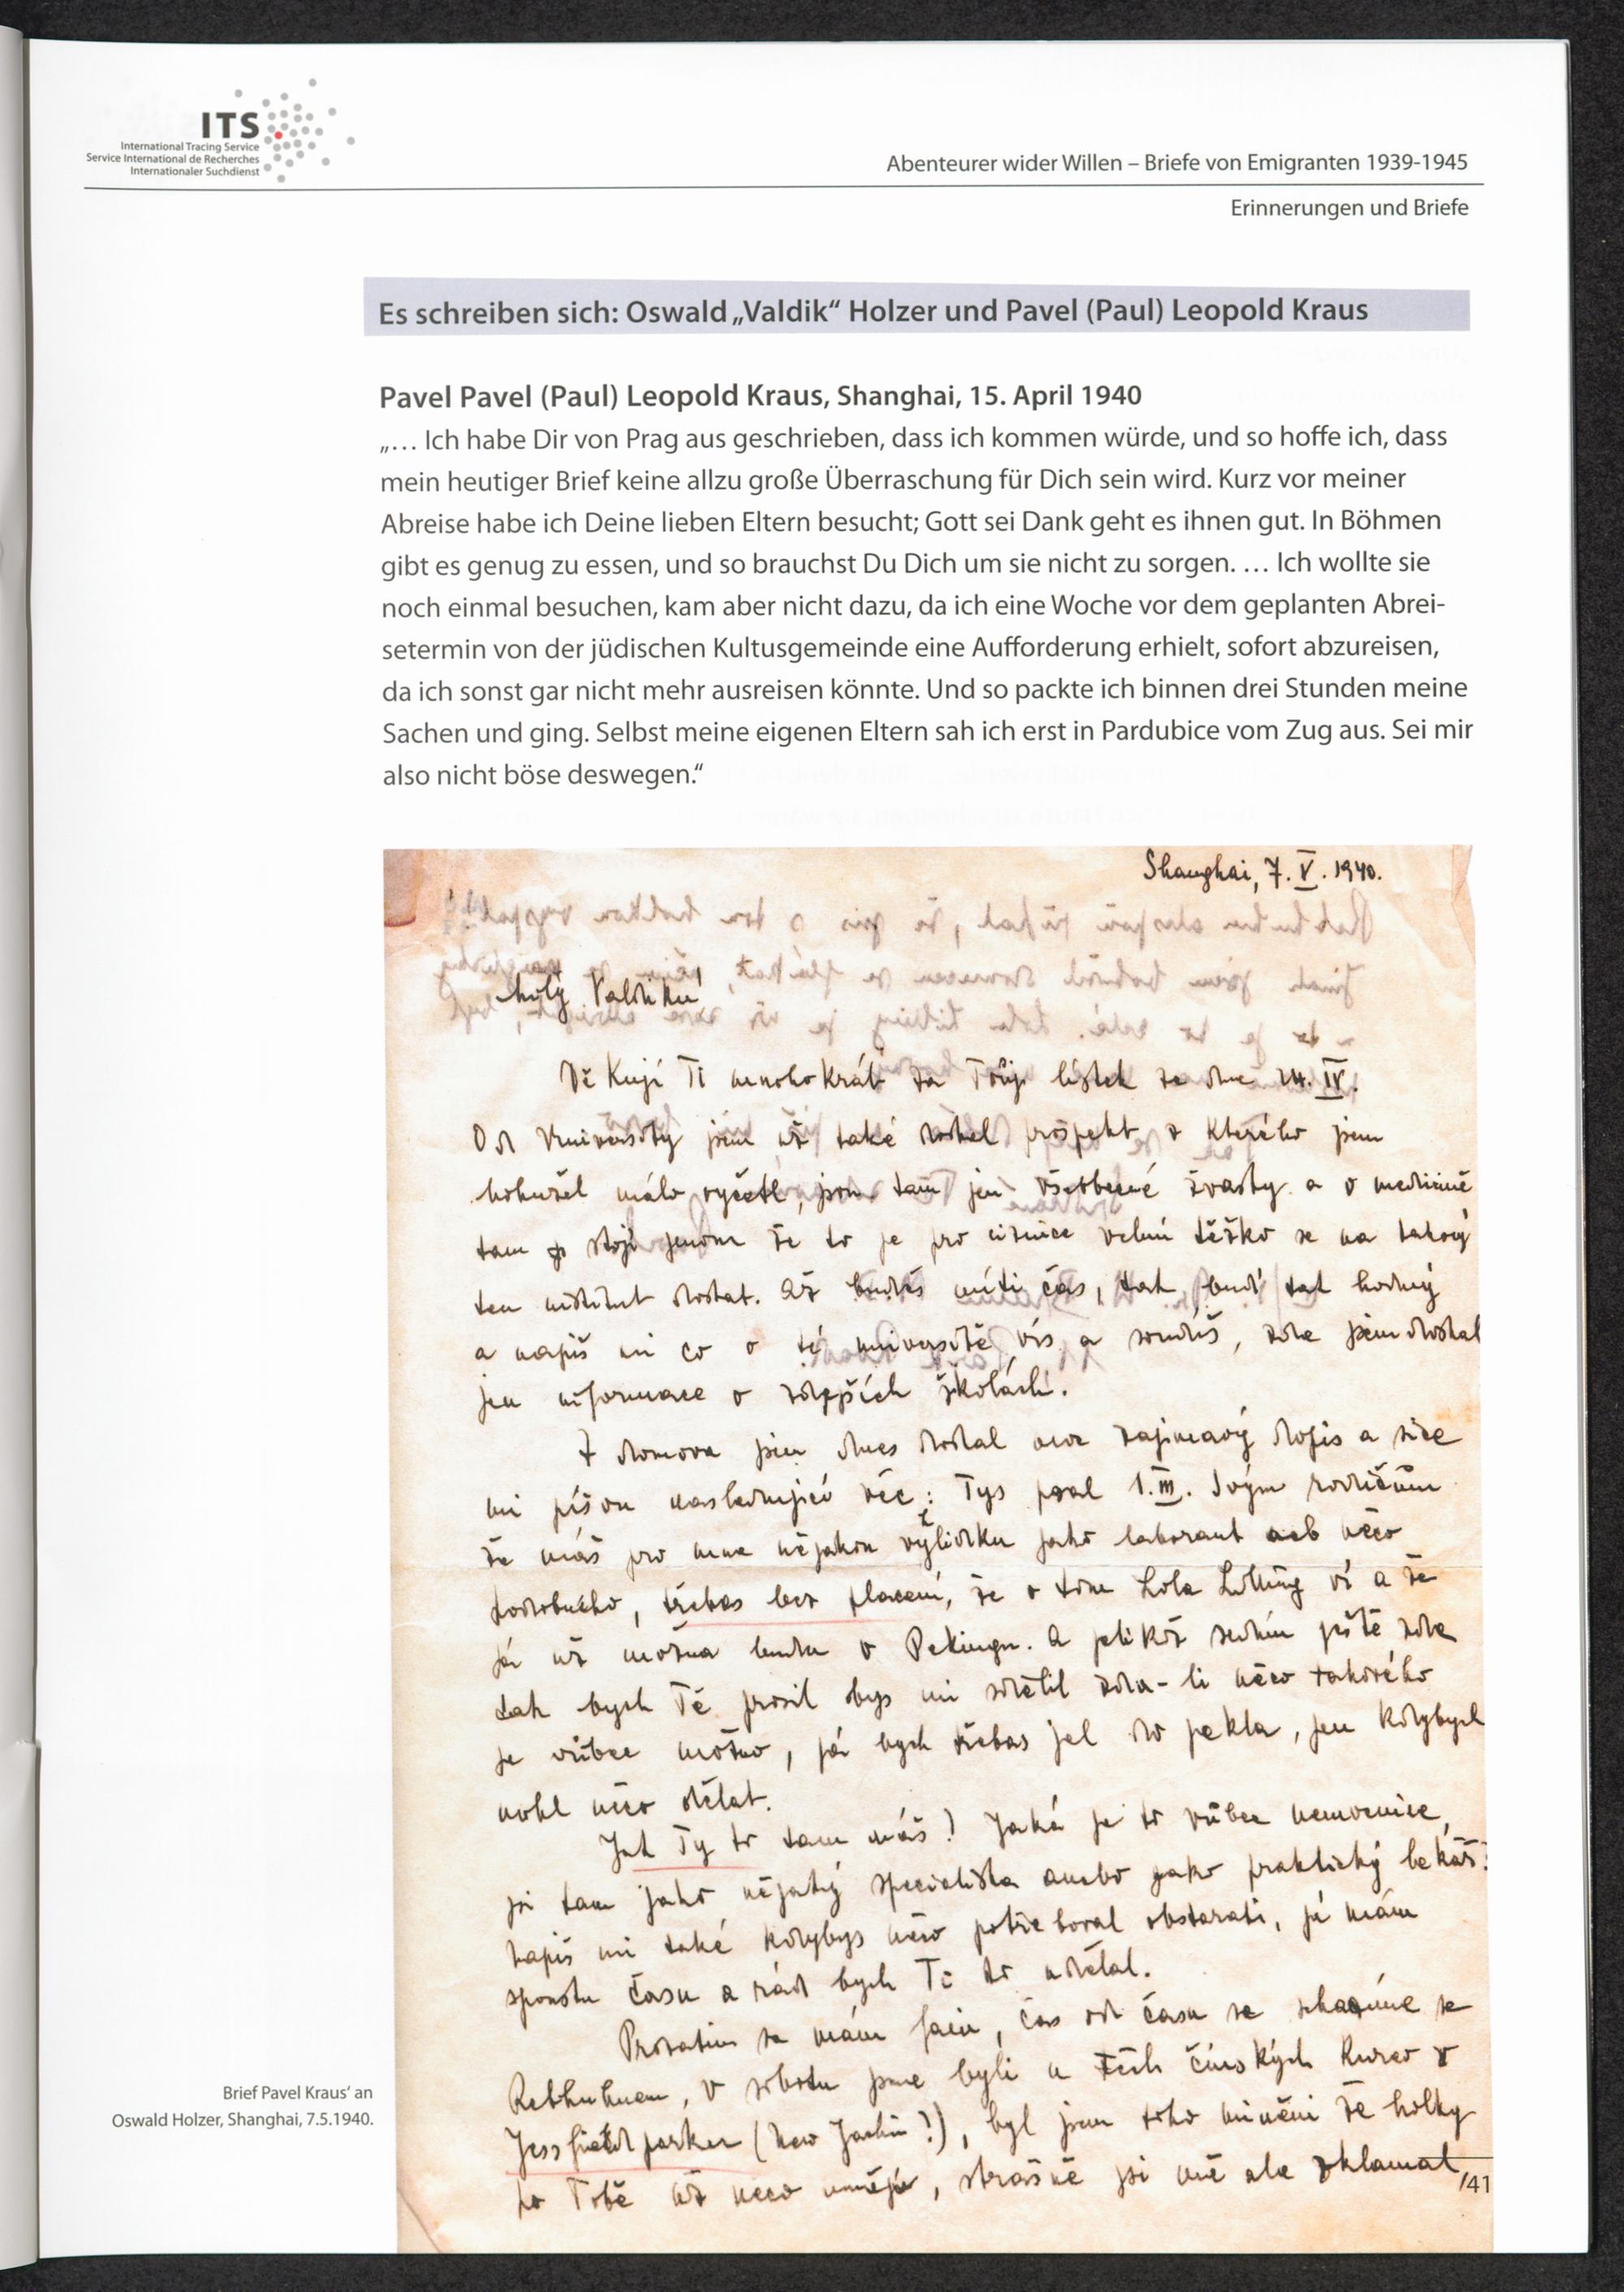 ITS
International Tracing Service
Service International de Recherches
Internationaler Suchdienst
Abenteurer wider Willen – Briefe von Emigranten 1939-1945
Erinnerungen und Briefe
Es schreiben sich: Oswald „Valdik“ Holzer und Pavel (Paul) Leopold Kraus
Pavel Pavel (Paul) Leopold Kraus, Shanghai, 15. April 1940
„… Ich habe Dir von Prag aus geschrieben, dass ich kommen würde, und so hoffe ich, dass
mein heutiger Brief keine allzu große Überraschung für Dich sein wird. Kurz vor meiner
Abreise habe ich Deine lieben Eltern besucht; Gott sei Dank geht es ihnen gut. In Böhmen
gibt es genug zu essen, und so brauchst Du Dich um sie nicht zu sorgen. … Ich wollte sie
noch einmal besuchen, kam aber nicht dazu, da ich eine Woche vor dem geplanten Abrei-
setermin von der jüdischen Kultusgemeinde eine Aufforderung erhielt, sofort abzureisen,
da ich sonst gar nicht mehr ausreisen könnte. Und so packte ich binnen drei Stunden meine
Sachen und ging. Selbst meine eigenen Eltern sah ich erst in Pardubice vom Zug aus. Sei mir
also nicht böse deswegen.“
Shanghai, 7. V. 1940.
Milý Valdíku,
Děkuji Ti mnohokrát za Tvůj lístek ze dne 24. IV.
Od University jsem už také dostal prospekt z kterého jsem
bohužel málo vyčetl, jsou tam jen všeobecné žvasty a o medicíně
tam stojí jenom že to je pro cizince velmi těžko se na takový
ten institut dostat. Až budeš míti čas, tak buď tak hodný
a napiš mi co o té universitě víš a soudíš, zde jsem dostal
jen informace o zdejších školách.
Z domova jsem dnes dostal moc zajímavý dopis a sice
mi píšou následující věc: Tys psal 1. III. svým rodičům
že máš pro mne nějakou vyhlídku jako laborant neb něco
podobného, třebas bez placení, že o tom Lola ví a že
já už možna budu v Pekingu. A jelikož sedím ještě zde
tak bych Tě prosil abys mi sdělil zda-li něco takového
je vůbec možno, já bych třebas jel do pekla, jen kdybych
mohl něco dělat.
Jak Ty to tam máš? Jaká je to vůbec nemocnice,
jsi tam jako nějaký specialista anebo jako praktický lekář?
Napiš mi také kdybys něco potřeboval obstarati, já mám
spoustu času a rád bych Ti to udělal.
Prozatim se mám fain, čas od času se scházíme se
Rebhuhnem, v sobotu jsme byli u těch čínských kurev v
Jessfield parku (New ?), byl jsem toho mínění že holky
po Tobě už něco umějí, strašně jsi mě ale zklamal,
Brief Pavel Kraus‘ an
Oswald Holzer, Shanghai, 7.5.1940.
/41